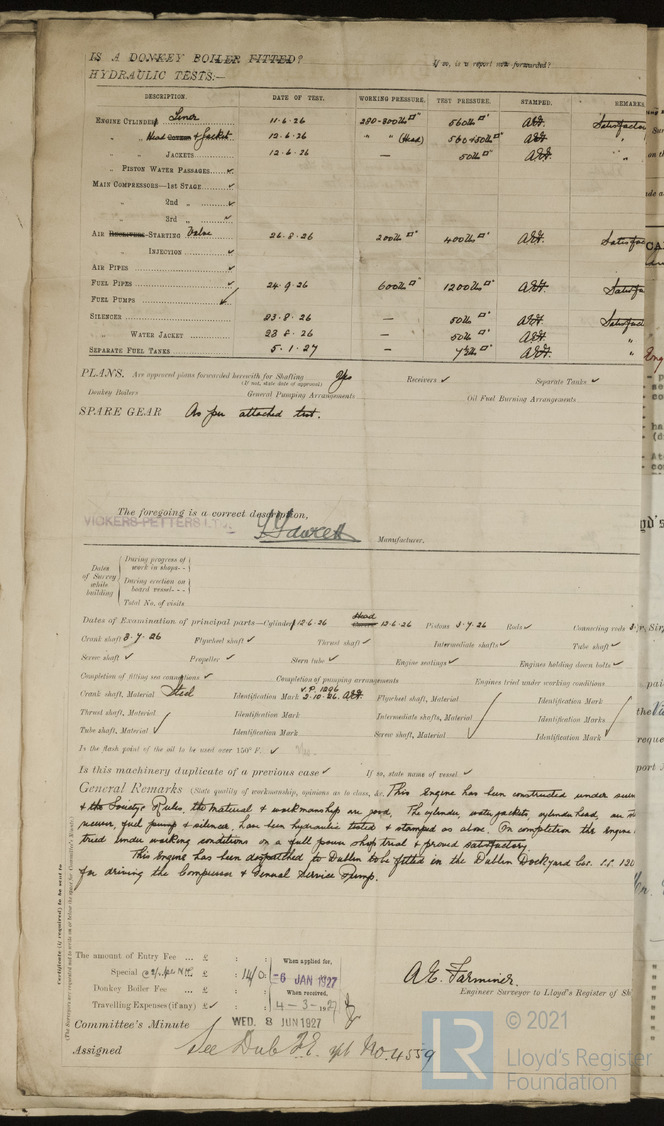 IS A DONKEY BOILER FITTED? If so, is a report now forwarded?
HYDRAULIC TESTS:—
DESCRIPTION. DATE OF TEST. WORKING PRESSURE. TEST PRESSURE. STAMPED. REMARKS
ENGINE CYLINDER Liner 11.6.26 280-800lb□" 560lb□" AEF. Satisfactory
" " Head COVERS & Jacket 12.6.26 " " (Head) 560+50lb□" AEF. "
" JACKETS 12.6.26 — 50lb AEF. "
" PISTON WATER PASSAGES ✓
MAIN COMPRESSORS—1ST STAGE ✓
2nd " ✓
3rd " ✓
AIR RECEIVERS—STARTING Valve 26.8.26 200lb□" 400lb□" AEF. Satisfac
INJECTION ✓
AIR PIPES ✓
FUEL PIPES ✓ 24.9.26 600lb□" 1200lb□" AEF. Satisfa
FUEL PUMPS ✓
SILENCER 23.8.26 — 50lb□" AEF. Satisfac
" WATER JACKET 23.8.26 — 50lb□" AEF. "
SEPARATE FUEL TANKS 5.1.27 — 7½lb□" AEF. "
PLANS. Are approved plans forwarded herewith for Shafting Yes Receivers ✓ Separate Tanks ✓
(If not, state date of approval)
Donkey Boilers General Pumping Arrangements Oil Fuel Burning Arrangements
SPARE GEAR As per attached
The foregoing is a correct description,
VICKERS-PETTERS LTD. Manufacturer.
Dates of Survey while building
During progress of work in shops - -
During erection on board vessel - - -
Total No. of visits
Dates of Examination of principal parts—Cylinder 12.6.26 Head Covers 12.6.26 Pistons 3.7.26 Rods ✓ Connecting rods
Crank shaft 3.7.26 Flywheel shaft ✓ Thrust shaft ✓ Intermediate shafts ✓ Tube shaft ✓
Screw shaft ✓ Propeller ✓ Stern tube ✓ Engine seatings ✓ Engines holding down bolts ✓
Completion of fitting sea connections ✓ Completion of pumping arrangements Engines tried under working conditions
Crank shaft, Material Steel Identification Mark V.P. 1296 2.10.26. AEF. Flywheel shaft, Material Identification Mark
Thrust shaft, Material Identification Mark Intermediate shafts, Material Identification Marks
Tube shaft, Material ✓ Identification Mark Screw shaft, Material Identification Mark
Is the flash point of the oil to be used over 150° F. ✓
Is this machinery duplicate of a previous case ✓ If so, state name of vessel ✓
General Remarks (State quality of workmanship, opinions as to class, &c. This engine has been constructed under
& the Society's Rules, the material & workmanship are good. The cylinder, water jackets, cylinder head, air
fuel pump & silencer, have been hydraulic tested & stamped as above. On completion the engine
tried under working conditions on a full power shop trial & proved satisfactory.
This engine has been despatched to Dublin to be fitted in the Dublin Dockyard Cos. S.S. 120
for driving the Compressor & General Service Pump.
Certificate (if required) to be sent to
The amount of Entry Fee ... £ : : When applied for,
Special ... £ 14/0 : -6 JAN 1927
Donkey Boiler Fee ... £ : : When received,
Travelling Expenses (if any) £ ✓ : : 4-3-1927
A.E. Farminer.
Engineer Surveyor to Lloyd's Register of Sh
Committee's Minute WED. 8 JUN 1927
Assigned See Dub F.E. rpt No. 4559
© 2021
LR
Lloyd's Register
Foundation